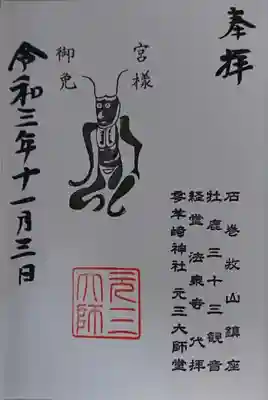 奉拝
石巻牧山鎮座
牡鹿三十三観音
経堂法泉寺代拝
零羊崎神社元三大師堂
宮様
御免
元三
大師
令和三年十一月三日